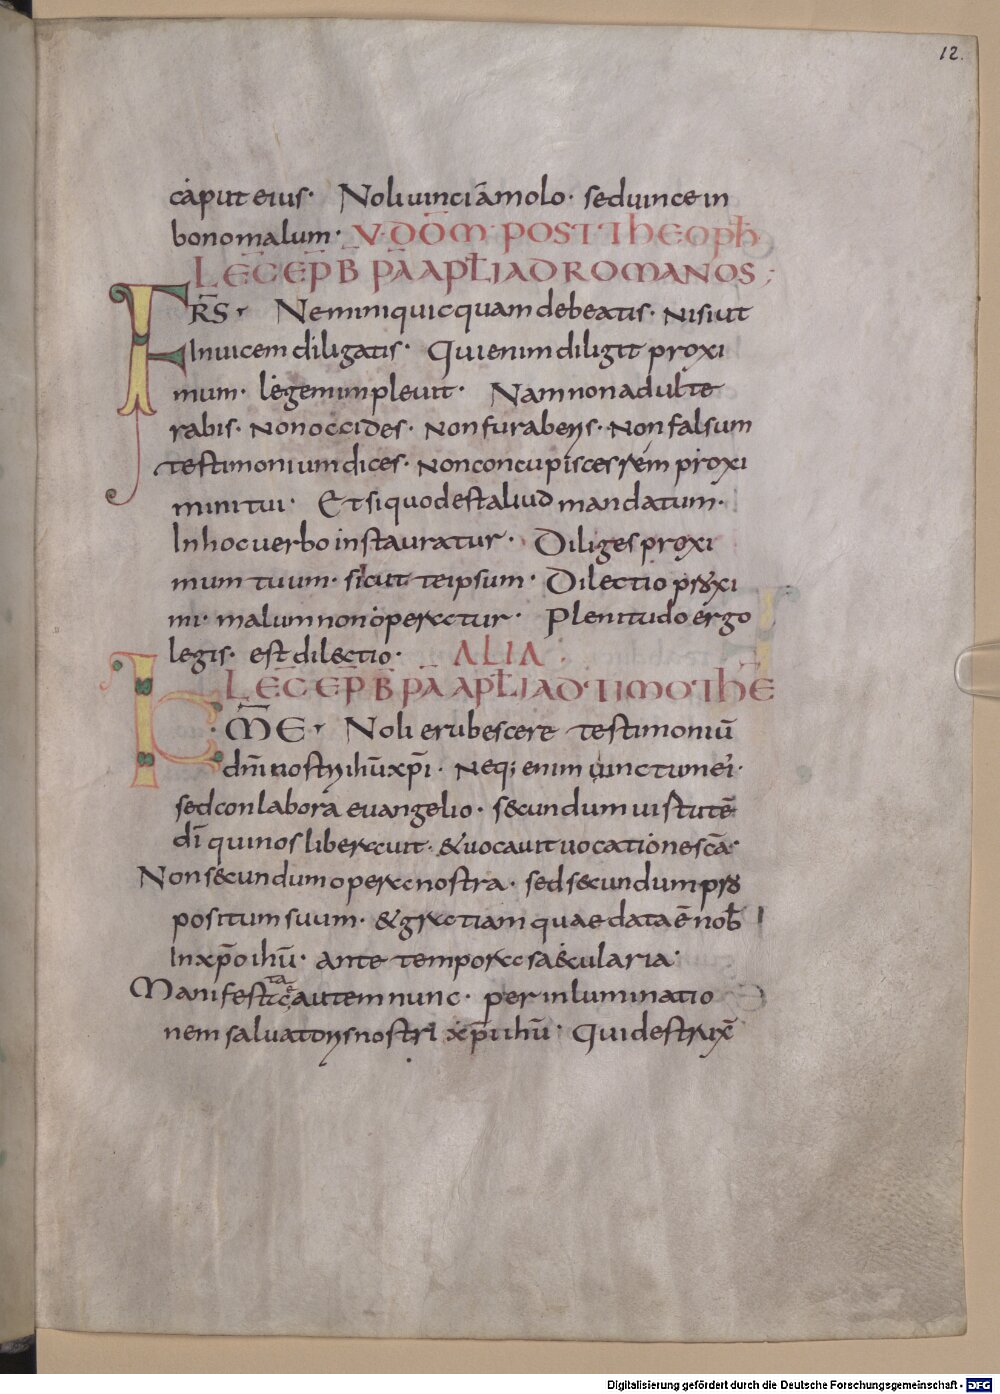 12.
caput eius · Noli uinci a malo · sed uince in
bono malum · V · DOM̄ · POST THEOPH̄
LEC̄ EP̄ B̄ PĀ APL̄I AD ROMANOS ;
FR̄S · Nemini quicquam debeatis · nisi ut
Inuicem diligatis · Qui enim diligit proxi
mum · legem impleuit · Nam non adulte
rabis · non occides · non furaberis · non falsum
testimonium dices · non concupisces rem proxi
mi tui · Et si quod est aliud mandatum ·
In hoc uerbo instauratur · Diliges proxi
mum tuum · sicut te ipsum · Dilectio proxi
mi · malum non operatur · Plenitudo ergo
legis · est dilectio · ALIA
LEC̄ EP̄ B̄ PĀ APL̄I AD TIMOTHĒ
K M̄E · Noli erubescere testimoniū
dn̄i nostri ihū xp̄i · Neq; enim uinctum ei ·
sed conlabora euangelio · secundum uirtutē
dī qui nos liberauit · & uocauit uocatione scā ·
Non secundum opera nostra · sed secundum pro
positum suum · & gratiam quae data ē nob̄
In xp̄o ihū · ante tempora saecularia ·
Manifestata ē autem nunc · per inluminatio
nem saluatoris nostri xp̄i ihū · Qui destrux̄
Digitalisierung gefördert durch die Deutsche Forschungsgemeinschaft - DFG